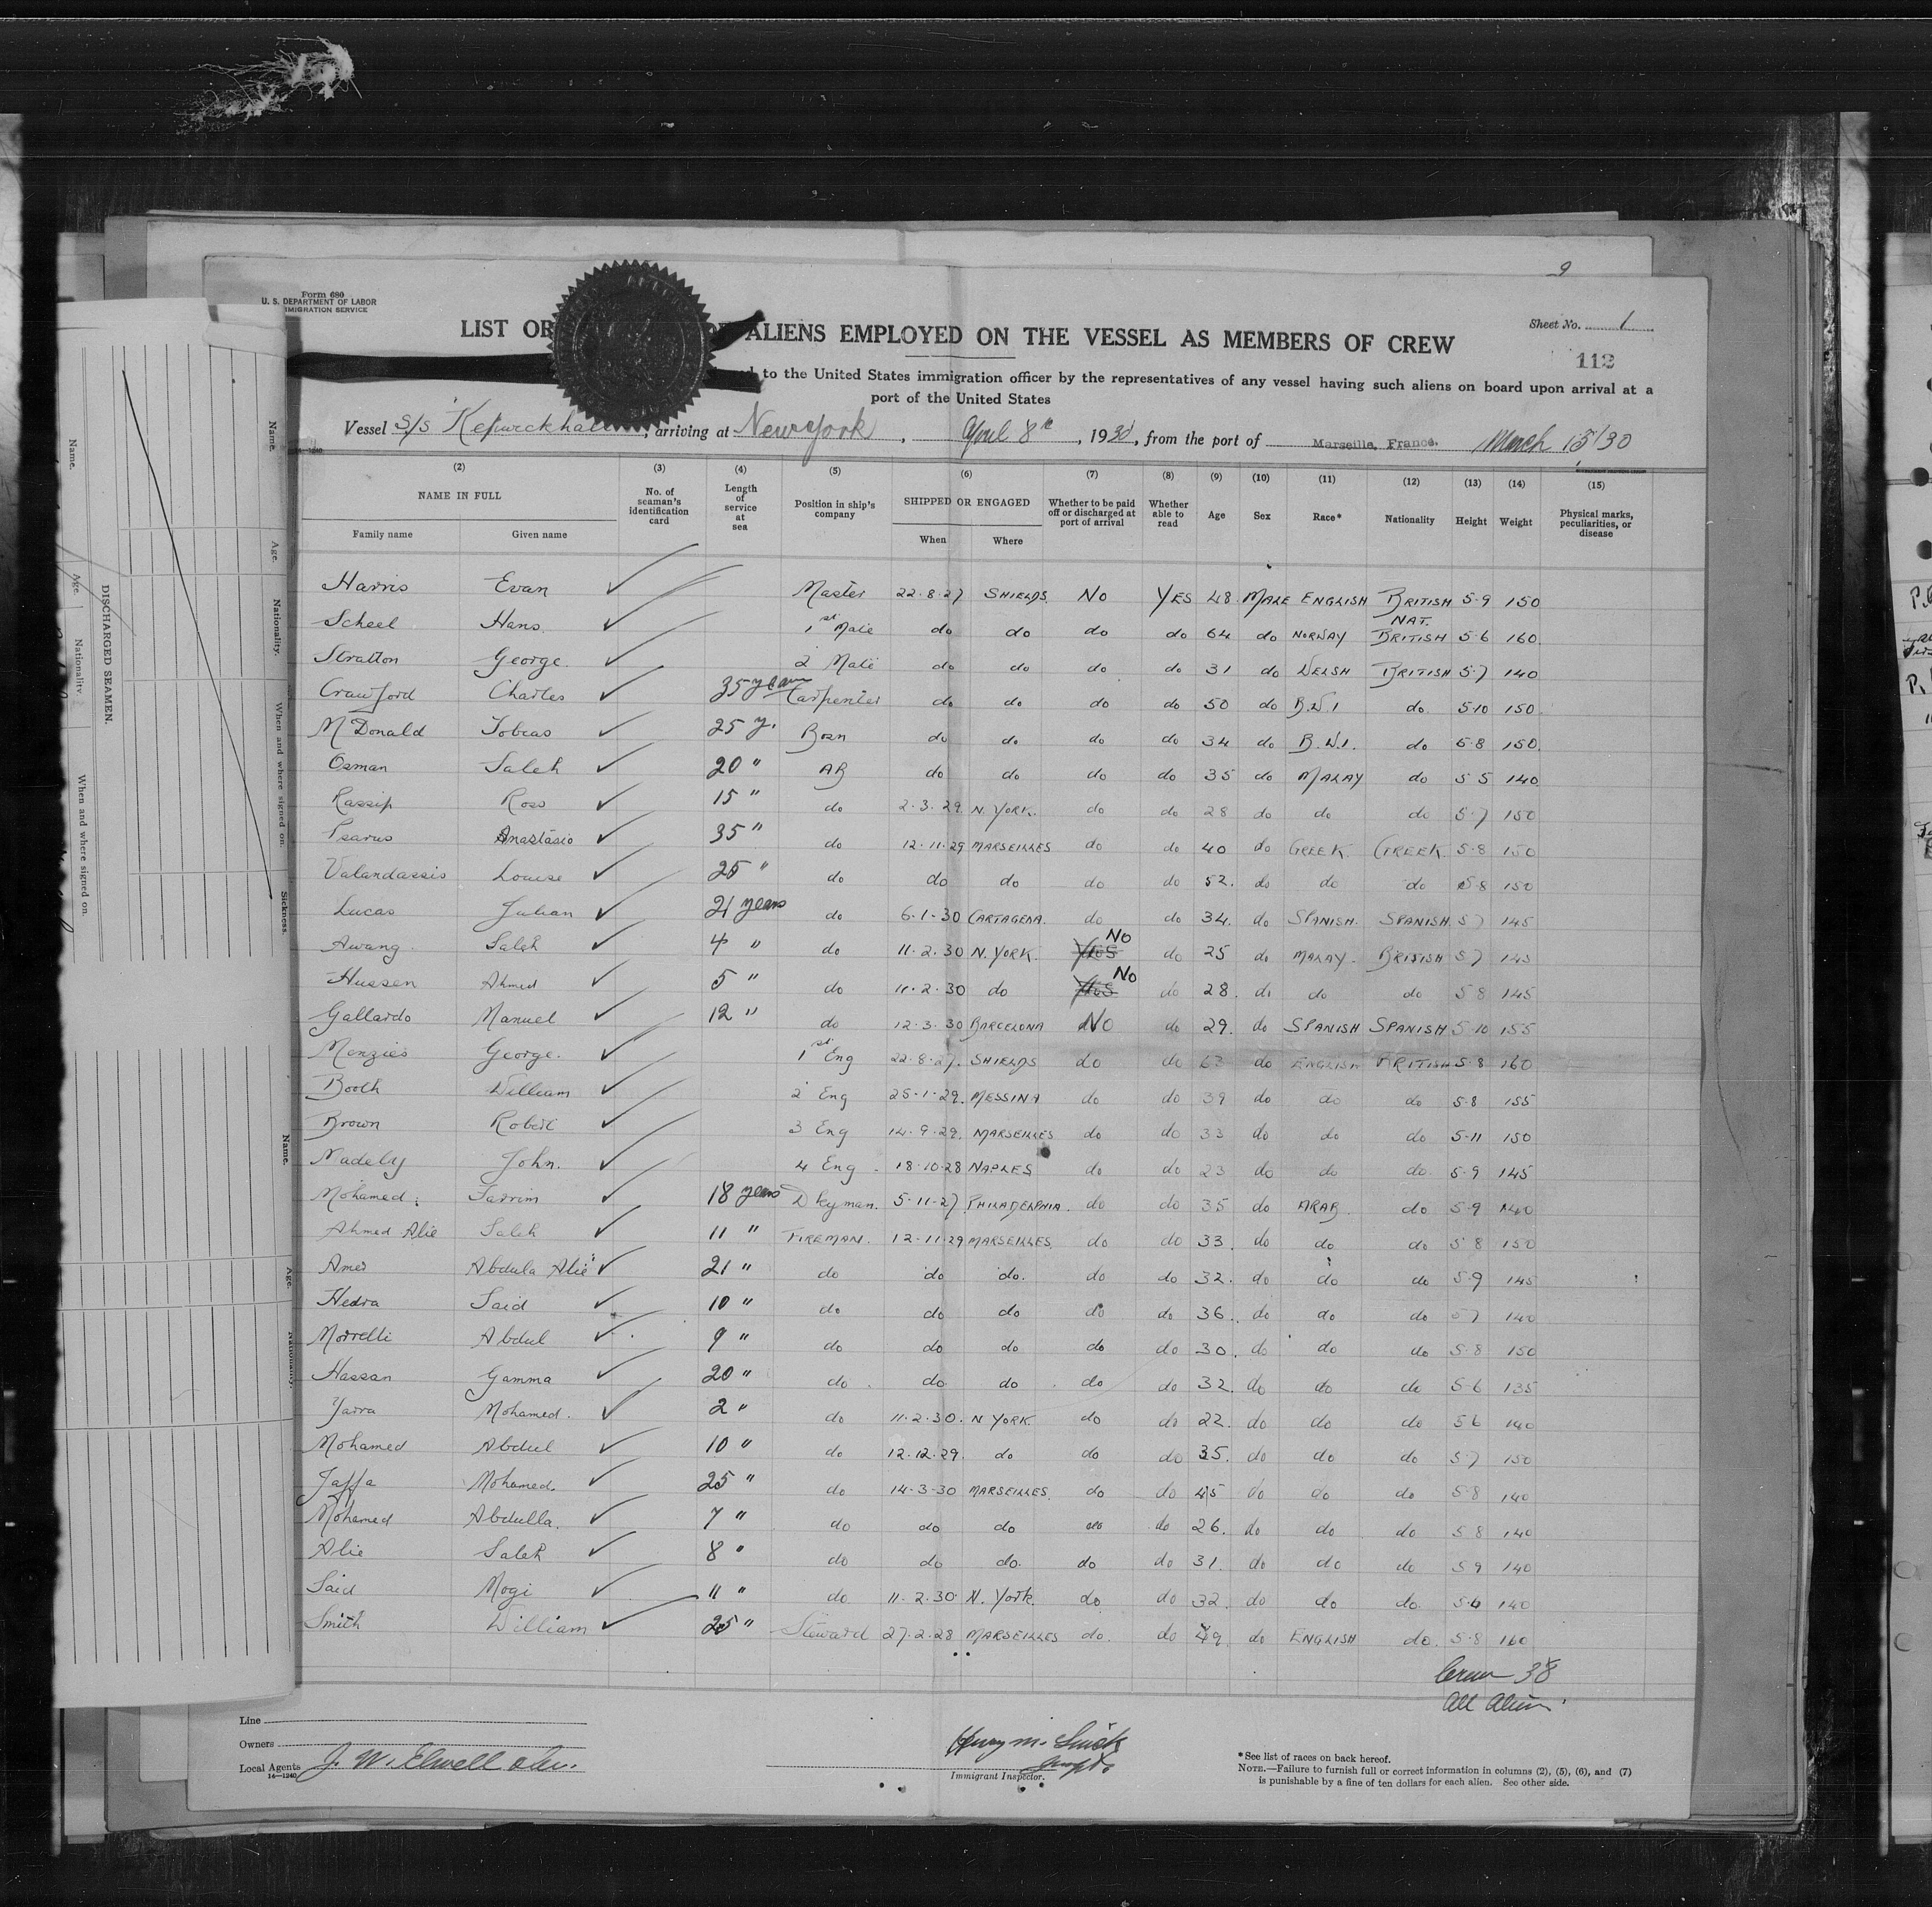 9
Form 680
U. S. DEPARTMENT OF LABOR
IMMIGRATION SERVICE
Sheet No. 1
LIST OR ALIENS EMPLOYED ON THE VESSEL AS MEMBERS OF CREW
112
to the United States immigration officer by the representatives of any vessel having such aliens on board upon arrival at a
port of the United States
Vessel S/S Kepwickhall, arriving at New York, April 8th, 1930, from the port of Marseille, France. March 15/30
(2) (3) (4) (5) (6) (7) (8) (9) (10) (11) (12) (13) (14) (15)
NAME IN FULL No. of seaman's identification card Length of service at sea Position in ship's company SHIPPED OR ENGAGED Whether to be paid off or discharged at port of arrival Whether able to read Age Sex Race* Nationality Height Weight Physical marks, peculiarities, or disease
Family name Given name When Where
Harris Evan Master 22.8.27 SHIELDS. No YES 48 MALE ENGLISH BRITISH 5.9 150
Scheel Hans 1st Mate do do do do 64 do NORWAY NAT. BRITISH 5.6 160
Stratton George. 2 Mate do do do do 31 do WELSH BRITISH 5.7 140
Crawford Charles 35 years Carpenter do do do do 50 do B.W.I do 5.10 150
McDonald Tobias 25 y. Bosn do do do do 34 do B.W.I. do 5.8 150
Osman Saleh 20 " AB do do do do 35 do MALAY do 5 5 140
Rassip Ross 15 " do 2.3.29 N. YORK. do do 28 do do do 5.7 150
Psarus Anastasio 35 " do 12.11.29 MARSEILLES do do 40 do GREEK. GREEK. 5.8 150
Valandassis Louise 25 " do do do do do 52. do do do 5.8 150
Lucas Julian 21 years do 6.1.30 CARTAGENA. do do 34. do SPANISH. SPANISH 5.7 145
Awang Saleh 4 " do 11.2.30 N. YORK. Yes No do 25 do MALAY. BRITISH 5.7 145
Hussen Ahmed 5 " do 11.2.30 do Yes No do 28. do do do 5 8 145
Gallardo Manuel 12 " do 12.3.30 BARCELONA No do 29. do SPANISH SPANISH 5.10 155
Menzies George. 1st Eng 22.8.27. SHIELDS do do 63 do ENGLISH BRITISH 5.8 160
Booth William 2 Eng 25.1.29. MESSINA do do 39 do do do 5.8 155
Brown Robert 3 Eng 14.9.29. MARSEILLES do do 33 do do do 5.11 150
Madely John. 4 Eng 18.10.28 NAPLES do do 23 do do do. 5.9 145
Mohamed Farrim 18 years Dkyman. 5.11.27 PHILADELPHIA. do do 35 do ARAB do 5.9 140
Ahmed Alie Saleh 11 " FIREMAN. 12.11.29 MARSEILLES. do do 33. do do do 5 8 150
Amer Abdula Alie 21 " do do do. do do 32. do do do 5.9 145
Hedra Said 10 " do do do do do 36. do do do 5 7 140
Morrelli Abdul 9 " do do do do do 30. do do do 5.8 150
Hassan Gamma 20 " do do do do do 32. do do do 5.6 135
Yarra Mohamed. 2 " do 11.2.30. N YORK. do do 22. do do do 5 6 140
Mohamed Abdul 10 " do 12.12.29. do do do 35. do do do 5.7 150
Jaffa Mohamed. 25 " do 14-3-30 MARSEILLES. do do 45 do do do 5.8 140
Mohamed Abdulla. 7 " do do do do do 26. do do do 5 8 140
Alie Saleh 8 " do do do. do do 31. do do do 5 9 140
Said Mogi 11 " do 11.2.30 N. York. do do 32. do do do. 5.4 140
Smith William 25 " Steward 27.2.28 MARSEILLES do. do 49 do ENGLISH do. 5.8 160
Crew 38
All Alien
Line
Owners
Local Agents J. W. Elwell & Co.
14—1240
Immigrant Inspector.
*See list of races on back hereof.
NOTE.—Failure to furnish full or correct information in columns (2), (5), (6), and (7)
is punishable by a fine of ten dollars for each alien. See other side.
DISCHARGED SEAMEN.
Name. Age. Nationality When and where signed on.
Name. Age. Nationality. When and where signed on. Sickness.
Name. Age. Nationality.